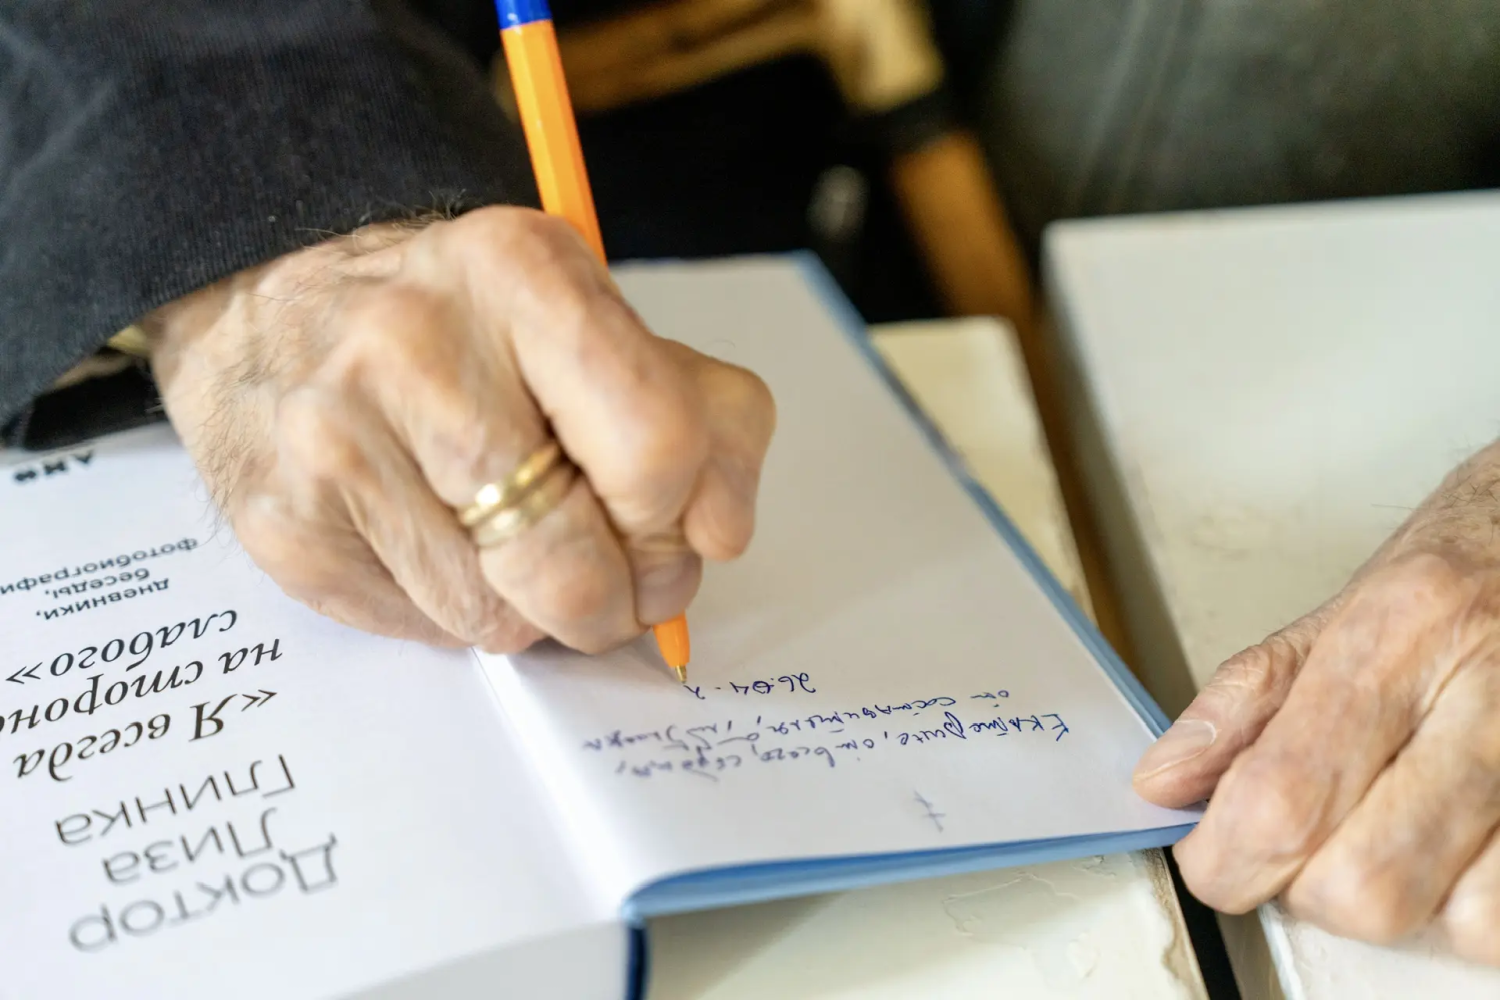 Доктор
Лиза
Глинка
«Я всегда
на сторон
слабого»
дневники,
беседы,
фотобиографи
Екатерине, от всего сердца,
от составителя,
26.04.2